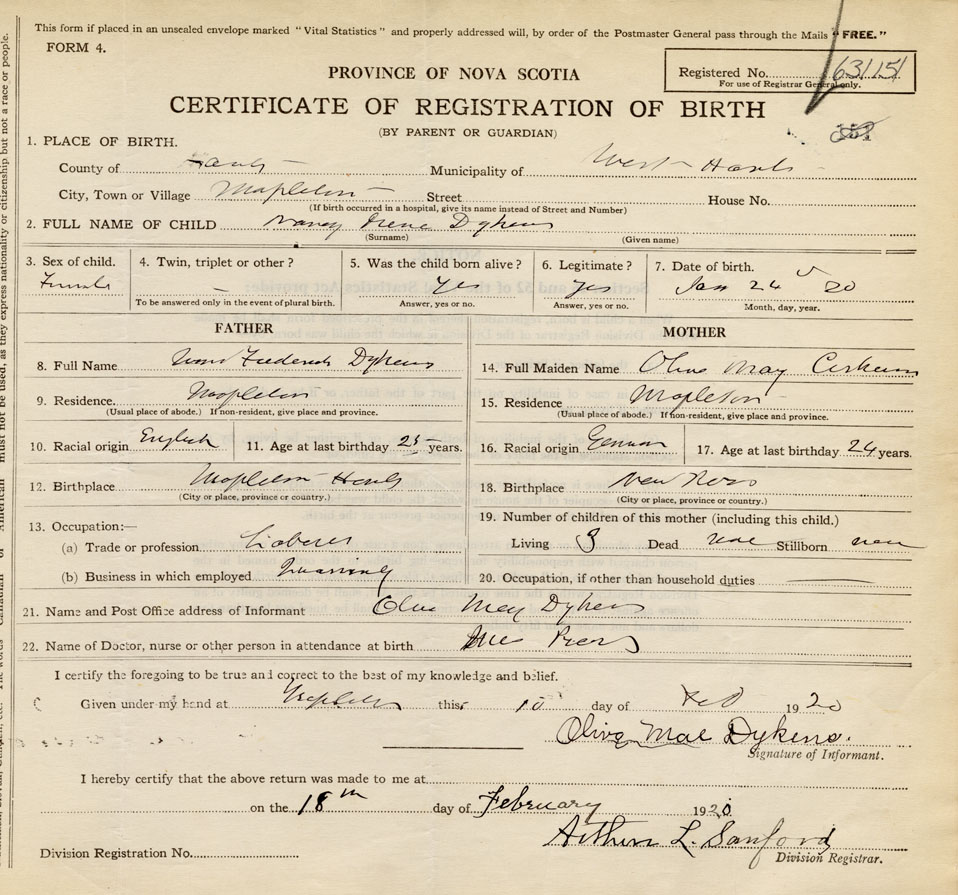 This form if placed in an unsealed envelope marked "Vital Statistics" and properly addressed will, by order of the Postmaster General pass through the Mails "FREE."
FORM 4.
PROVINCE OF NOVA SCOTIA
Registered No. 63115
For use of Registrar General only.
CERTIFICATE OF REGISTRATION OF BIRTH
(BY PARENT OR GUARDIAN)
1. PLACE OF BIRTH.
County of Hants Municipality of West Hants
City, Town or Village Mapleton Street House No.
(If birth occurred in a hospital, give its name instead of Street and Number)
2. FULL NAME OF CHILD Nancy Irene Dykens
(Surname) (Given name)
3. Sex of child. 4. Twin, triplet or other? 5. Was the child born alive? 6. Legitimate? 7. Date of birth.
Female – Yes Yes Jan 24 20
To be answered only in the event of plural birth. Answer, yes or no. Answer, yes or no. Month, day, year.
FATHER MOTHER
8. Full Name Frederick Dykens 14. Full Maiden Name Olive May
9. Residence Mapleton 15. Residence Mapleton
(Usual place of abode.) If non-resident, give place and province. (Usual place of abode.) If non-resident, give place and province.
10. Racial origin English 11. Age at last birthday 25 years. 16. Racial origin German 17. Age at last birthday 24 years.
12. Birthplace Mapleton Hants 18. Birthplace New Ross
(City or place, province or country.) (City or place, province or country.)
13. Occupation:— 19. Number of children of this mother (including this child.)
(a) Trade or profession Laborer Living 3 Dead none Stillborn none
(b) Business in which employed Quarrying 20. Occupation, if other than household duties
21. Name and Post Office address of Informant Olive May Dykens
22. Name of Doctor, nurse or other person in attendance at birth Mrs
I certify the foregoing to be true and correct to the best of my knowledge and belief.
Given under my hand at Mapleton this 10 day of Feb 1920
Olive Mae Dykens.
Signature of Informant.
I hereby certify that the above return was made to me at
on the 18th day of February 1920
Arthur L. Sanford
Division Registration No. Division Registrar.